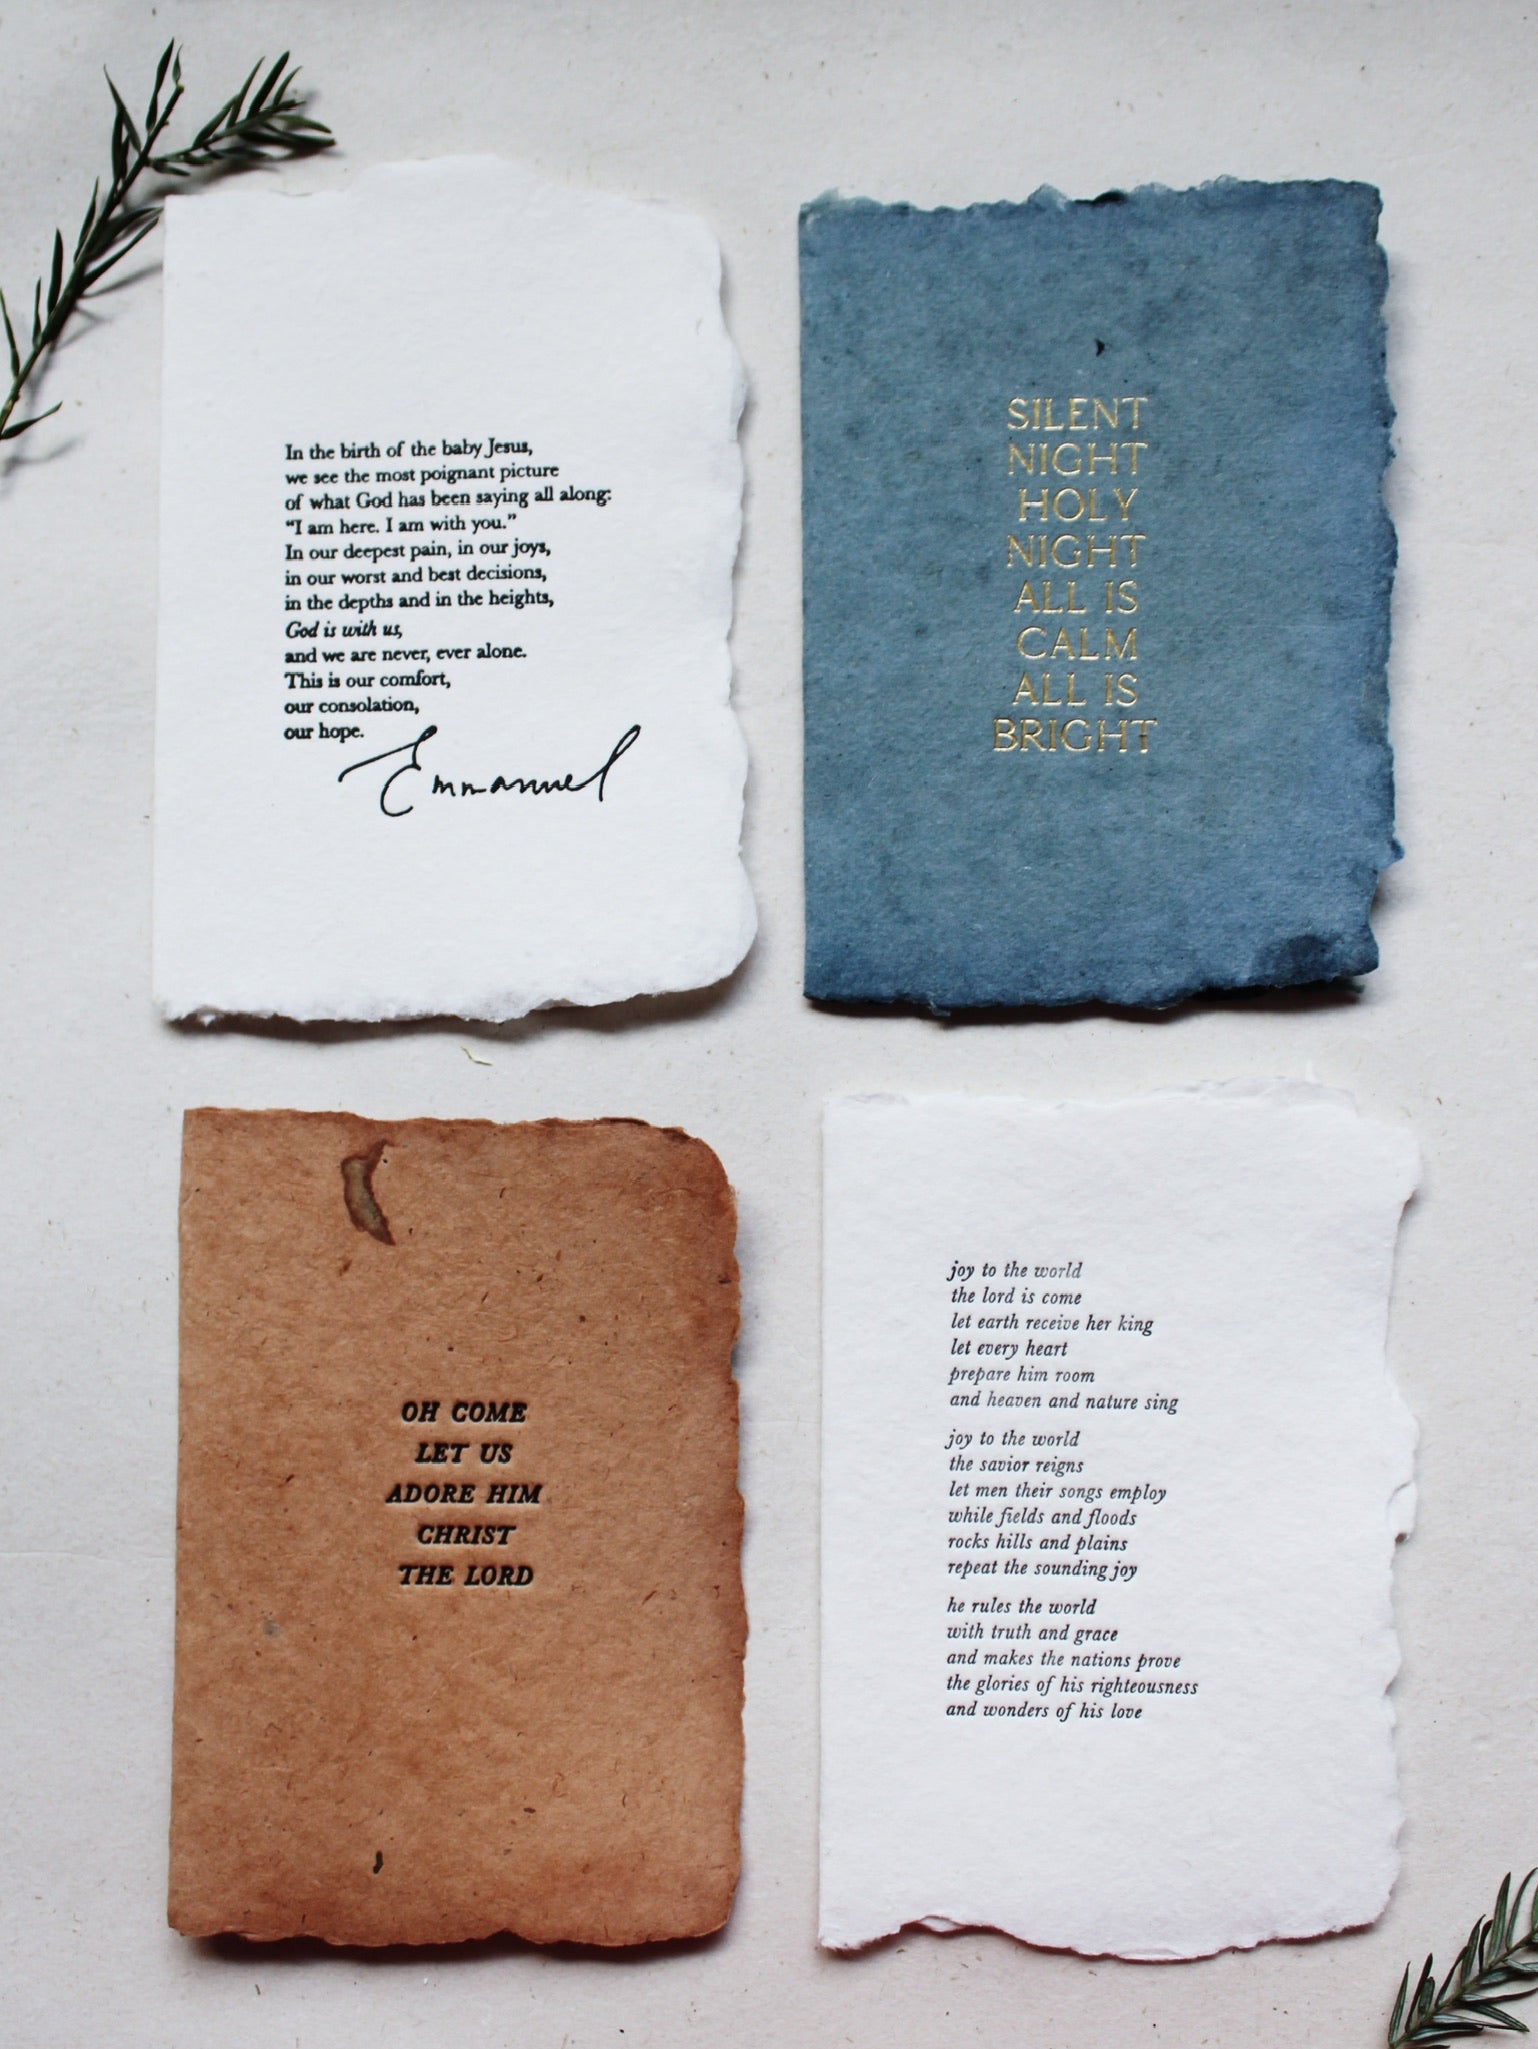 In the birth of the baby Jesus,
we see the most poignant picture
of what God has been saying all along:
“I am here. I am with you.”
In our deepest pain, in our joys,
in our worst and best decisions,
in the depths and in the heights,
God is with us,
and we are never, ever alone.
This is our comfort,
our consolation,
our hope.
Emmanuel
SILENT
NIGHT
HOLY
NIGHT
ALL IS
CALM
ALL IS
BRIGHT
OH COME
LET US
ADORE HIM
CHRIST
THE LORD
joy to the world
the lord is come
let earth receive her king
let every heart
prepare him room
and heaven and nature sing
joy to the world
the savior reigns
let men their songs employ
while fields and floods
rocks hills and plains
repeat the sounding joy
he rules the world
with truth and grace
and makes the nations prove
the glories of his righteousness
and wonders of his love